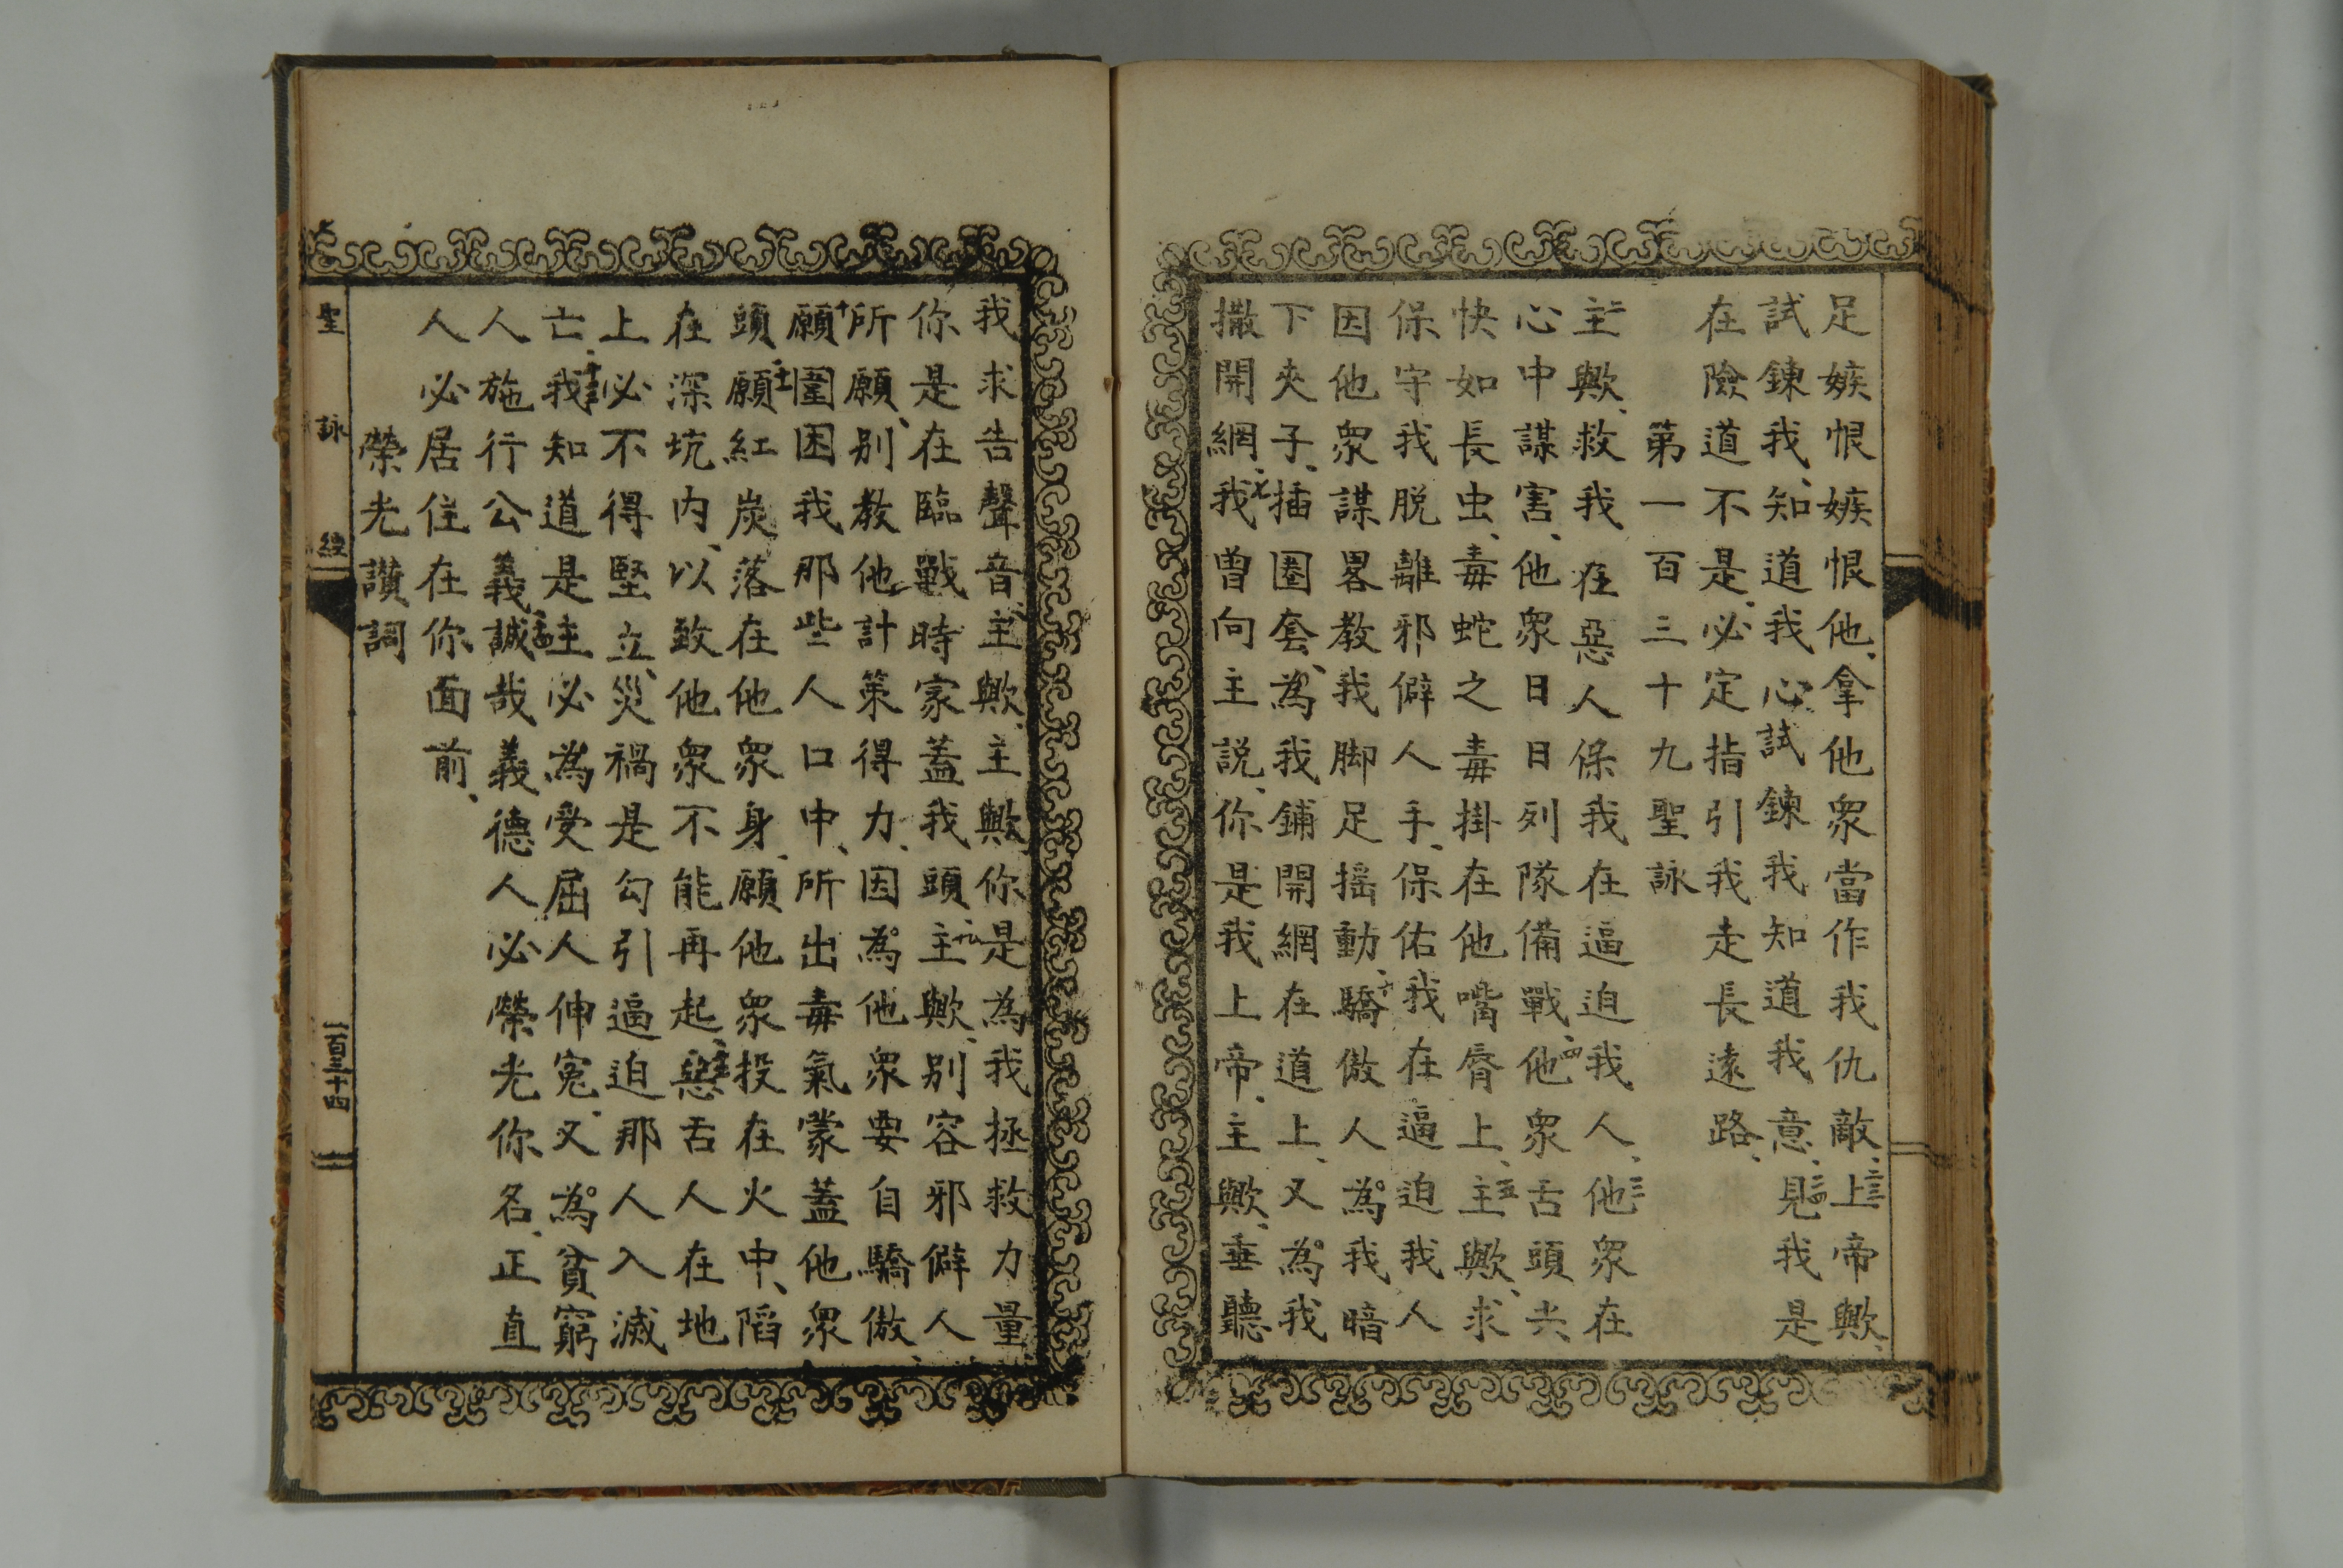 足嫉恨嫉恨他、拿他衆當作我仇敵、二三上帝歟、
試鍊我、知道我心、試鍊我知道我意、二四見我是
在險道不是、必定指引我走長遠路、
第一百三十九聖詠
二主歟、救我在惡人保我在逼迫我人、三他衆在
心中謀害、他衆日日列隊備戰、四他衆舌頭尖
快如長虫、毒蛇之毒掛在他嘴脣上、五主歟、求
保守我脱離邪僻人手、保佑我在逼迫我人
因他衆謀畧教我脚足摇動、六驕傲人為我暗
下夾子、插圈套、為我鋪開網在道上、又為我
撒開網、七我曾向主説、你是我上帝、主歟、垂聽
我求告聲音、八主歟、主歟、你是為我拯救力量、
你是在臨戰時家蓋我頭、九主歟、别容邪僻人
所願、别教他計策得力、因為他衆要自驕傲、
十願圍困我那些人口中、所出毒氣蒙蓋他衆
頭、十一願紅炭落在他衆身、願他衆投在火中、陷
在深坑内、以致他衆不能再起、十二惡舌人在地
上必不得堅立、災禍是勾引逼迫那人入滅
亡、十三我知道是主必為受屈人伸寃、又為貧窮
人施行公義、十四誠哉義德人必榮光你名、正直
人必居住在你面前、
榮光讃詞
聖詠經
一百三十四